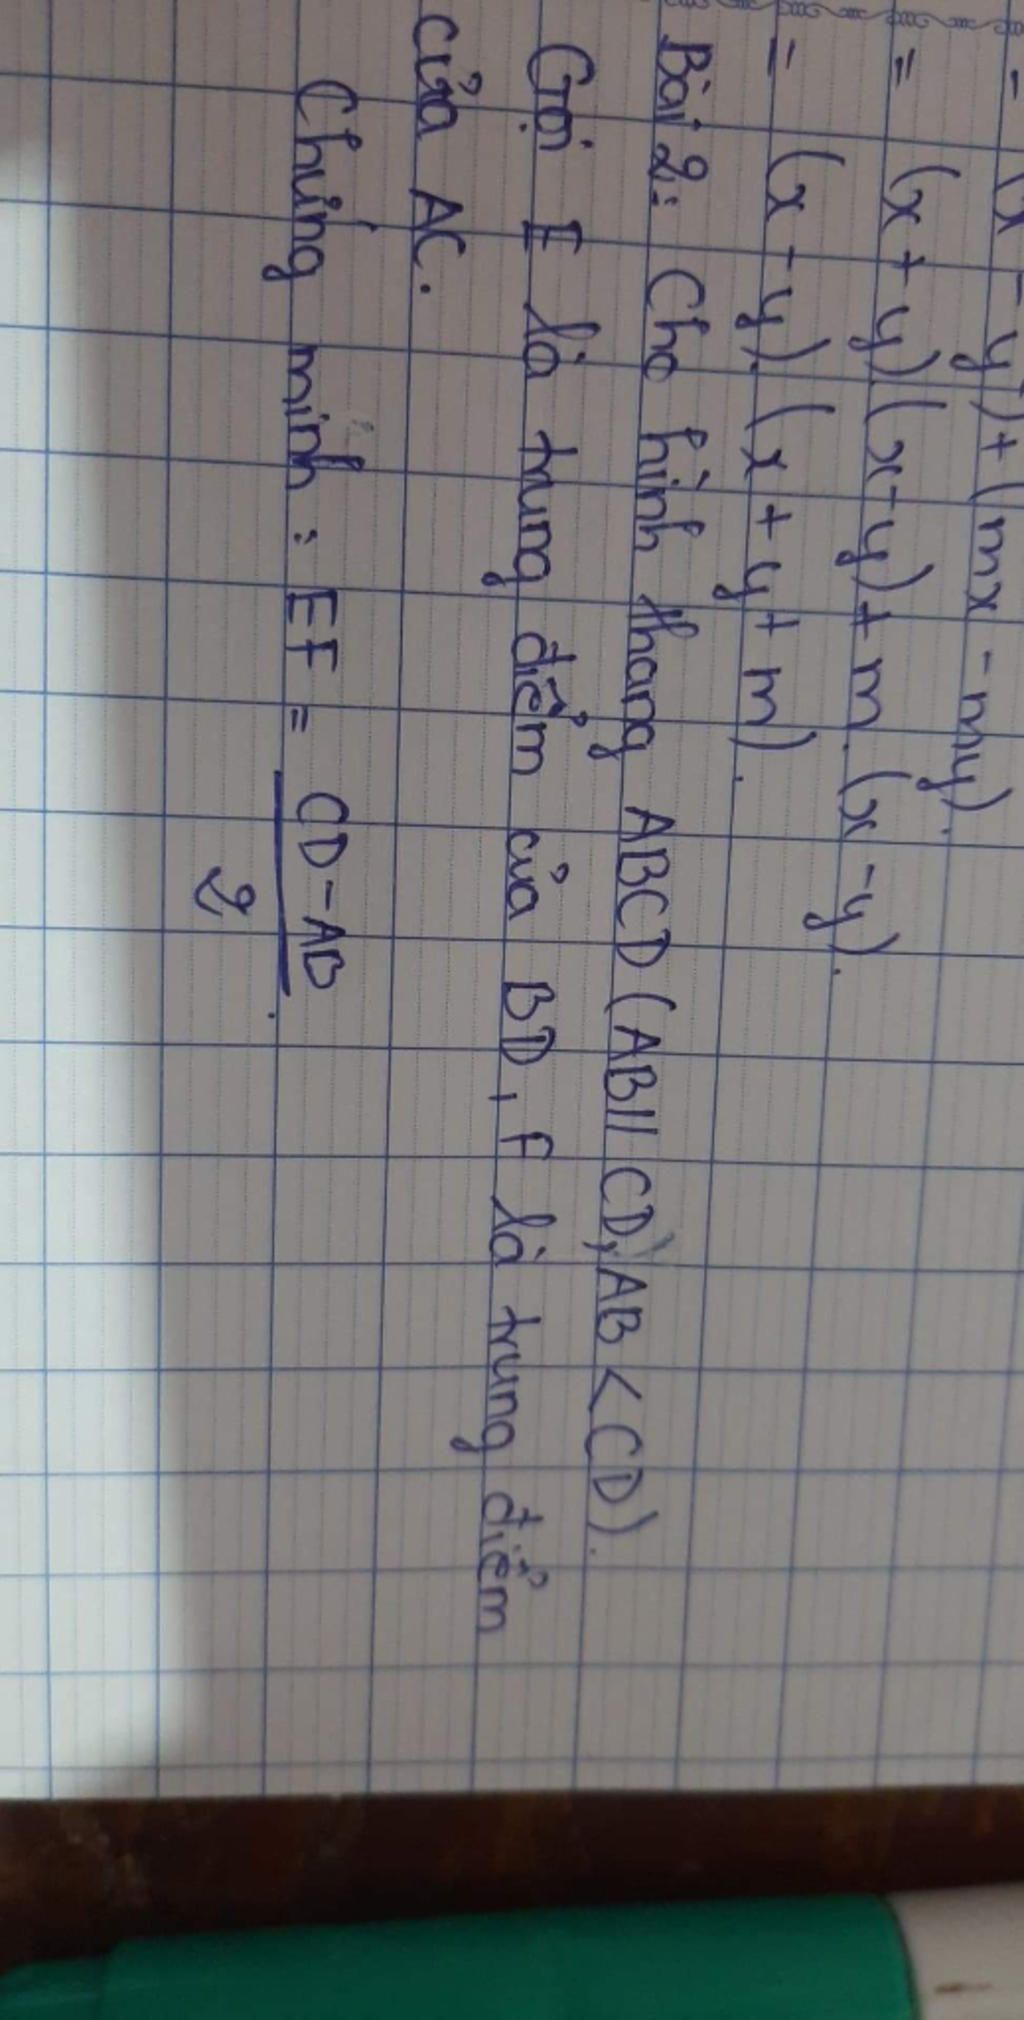 - y) + (mx - my).
= (x + y)(x - y) + m. (x - y).
= (x - y). (x + y + m).
Bài 2: Cho hình thang ABCD (AB // CD, AB < CD).
Gọi E là trung điểm của BD, F là trung điểm
của AC.
Chứng minh : EF = CD - AB
2